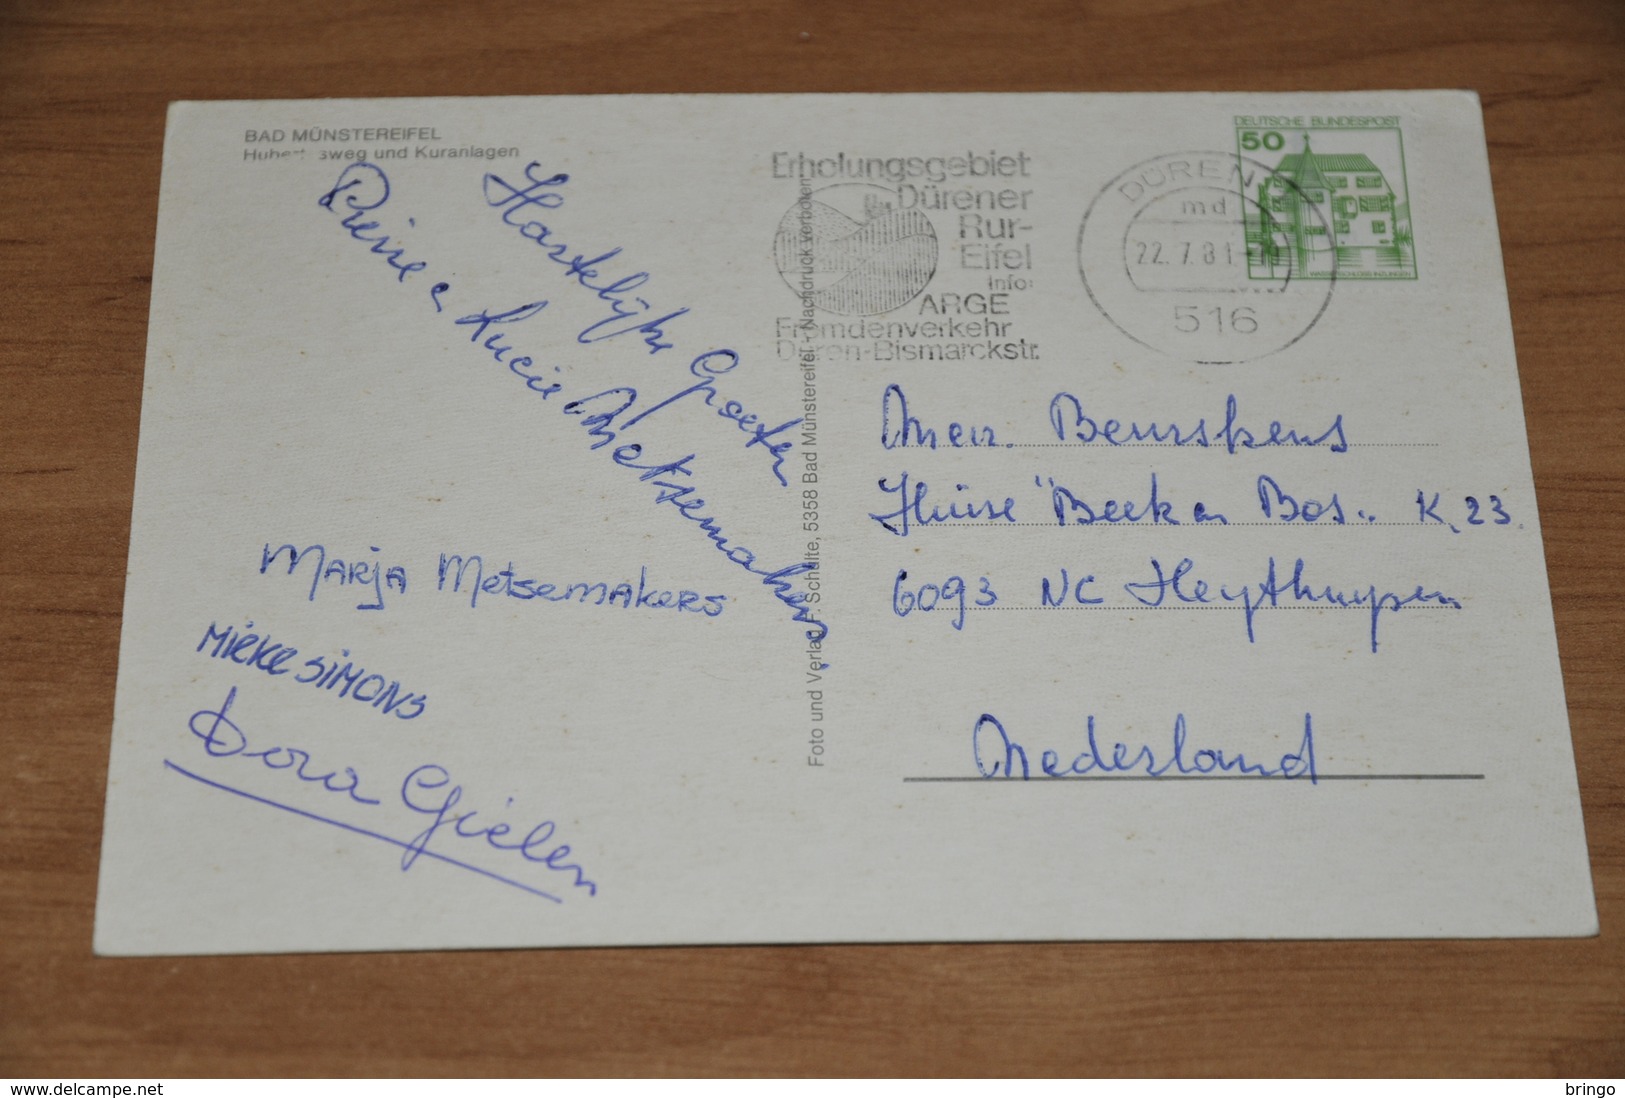 BAD MÜNSTEREIFEL
Hubertusweg und Kuranlagen
Hartelijke Groeten
Lucie Metsemakers
MARJA Metsemakers
MIEKE SIMONS
Dora Gielen
Foto und Verlag F. Schulte, 5358 Bad Münstereifel - Nachdruck verboten
Erholungsgebiet
Dürener
Rur-
Eifel
Info:
ARGE
Fremdenverkehr
Düren-Bismarckstr.
DÜREN
md
22.7.81
516
DEUTSCHE BUNDESPOST
50
WASSERSCHLOSS INZLINGEN
Beurskens
Huize "Beek en Bos" K.23
6093 NC Heythuysen
Nederland
delcampe.net
bringo